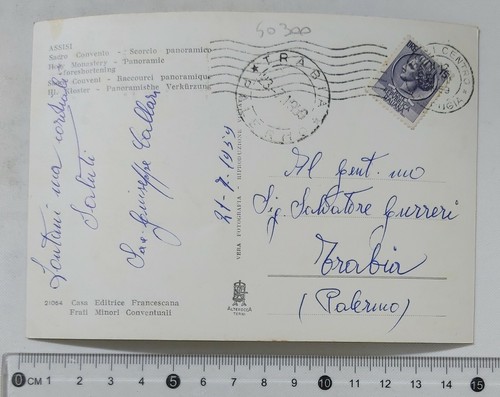 50300
ASSISI
Sacro Convento - Scorcio panoramico
Holy Monastery - Panoramic
foreshortening
Sacré Couvent - Raccourci panoramique
Hl. Kloster - Panoramische Verkürzung
Lontani ma cordiali
Saluti
Sac. Giuseppe Vallari
21-7-1959
VERA FOTOGRAFIA - RIPRODUZIONE
TRABIA
Al gent.mo
Sig. Salvatore Gurreri
Trabia
(Palermo)
21064 Casa Editrice Francescana
Frati Minori Conventuali
ALTEROCCA
TERNI
0 CM 1 2 3 4 5 6 7 8 9 10 11 12 13 14 15